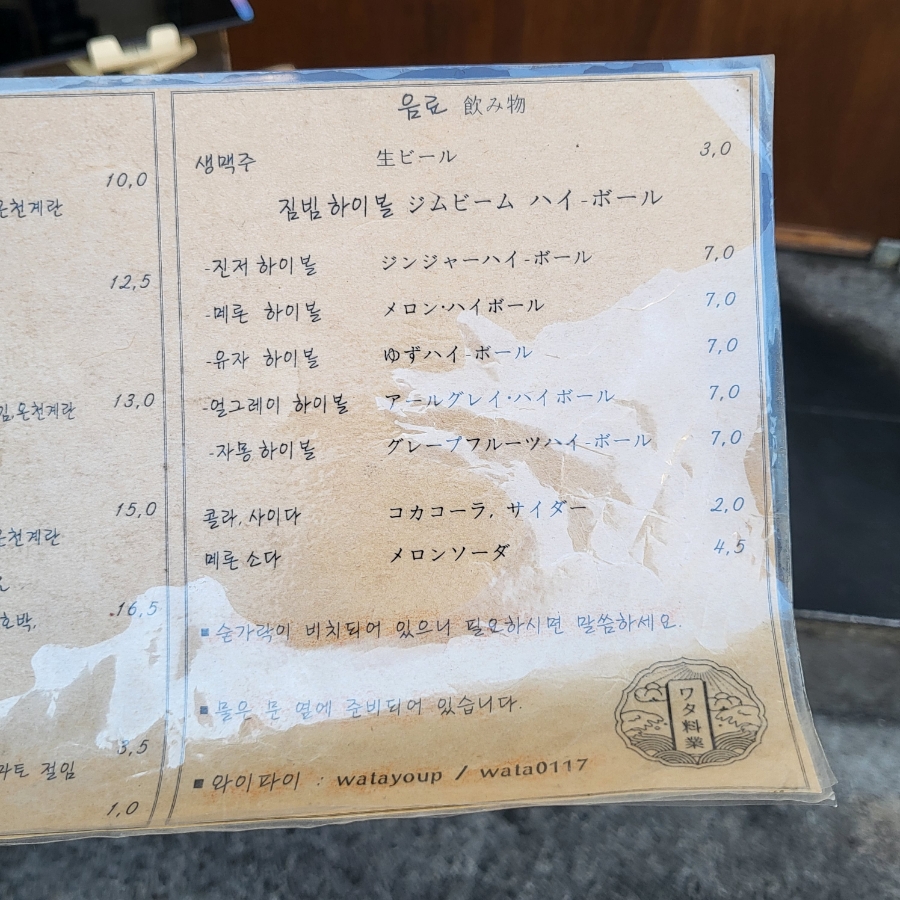 10,0
온천계란
12,5
13,0
김,온천계란
15,0
온천계란
호박,
16,5
3,5
토마토 절임
1,0
음료 飲み物
생맥주 生ビール 3,0
짐빔 하이볼 ジムビーム ハイ-ボール
-진저 하이볼 ジンジャーハイ-ボール 7,0
-메론 하이볼 メロン·ハイボール 7,0
-유자 하이볼 ゆずハイ-ボール 7,0
-얼그레이 하이볼 アールグレイ·ハイボール 7,0
-자몽 하이볼 グレープフルーツハイ-ボール 7,0
콜라, 사이다 コカコーラ, サイダー 2,0
메론 소다 メロンソーダ 4,5
▪ 숟가락이 비치되어 있으니 필요하시면 말씀하세요.
▪ 물은 문 옆에 준비되어 있습니다.
▪ 와이파이 : watayoup / wata0117
ワタ料業